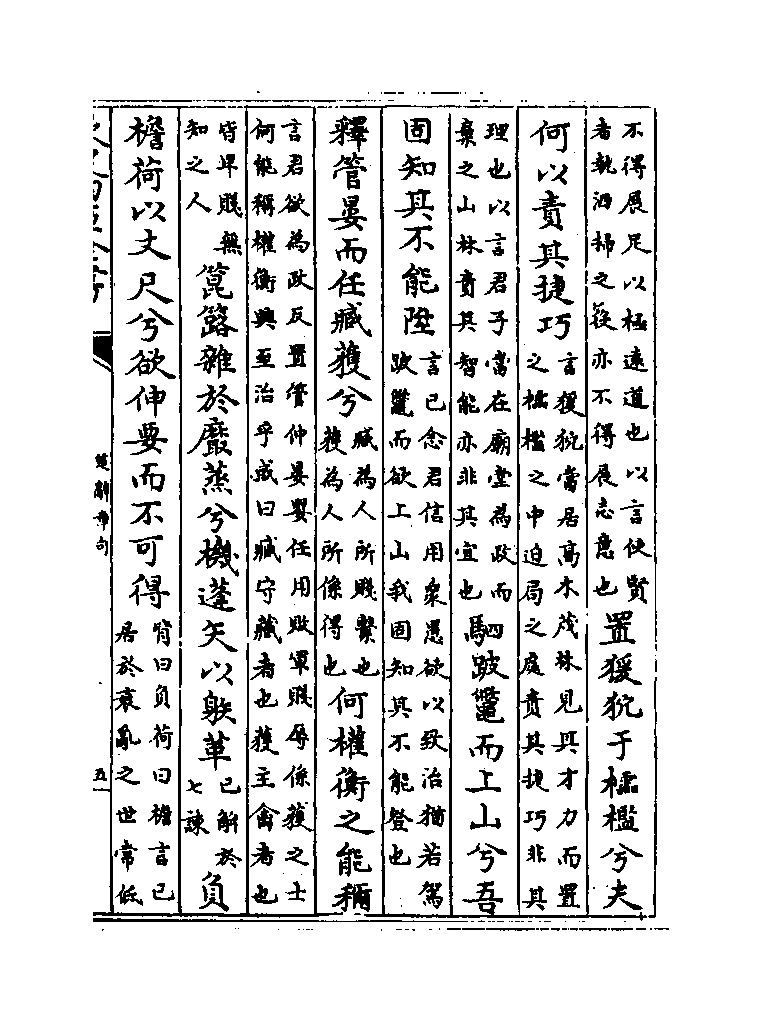 不得展足以極遠道也以言使賢
者執洒掃之役亦不得展志意也
置猨狖于櫺檻兮夫
何以責其捷巧
言猨狖當居高木茂林見其才力而置
之櫺檻之中迫局之處責其捷巧非其
理也以言君子當在廟堂為政而
棄之山林責其智能亦非其宜也
駟跛鼈而上山兮吾
固知其不能陞
言己念君信用衆愚欲以致治猶若駕
跛鼈而欲上山我固知其不能登也
釋管晏而任臧獲兮
臧為人所賤繫也
獲為人所係得也
何權衡之能稱
言君欲為政反置管仲晏嬰任用敗軍賤辱係獲之士
何能稱權衡興至治乎或曰臧守藏者也獲主禽者也
皆卑賤無
知之人
箟簬雜於黀蒸兮機蓬矢以䠶革
已解於
七諫
負
檐荷以丈尺兮欲伸要而不可得
背曰負荷曰檐言己
居於衰亂之世常低
楚辭章句
五